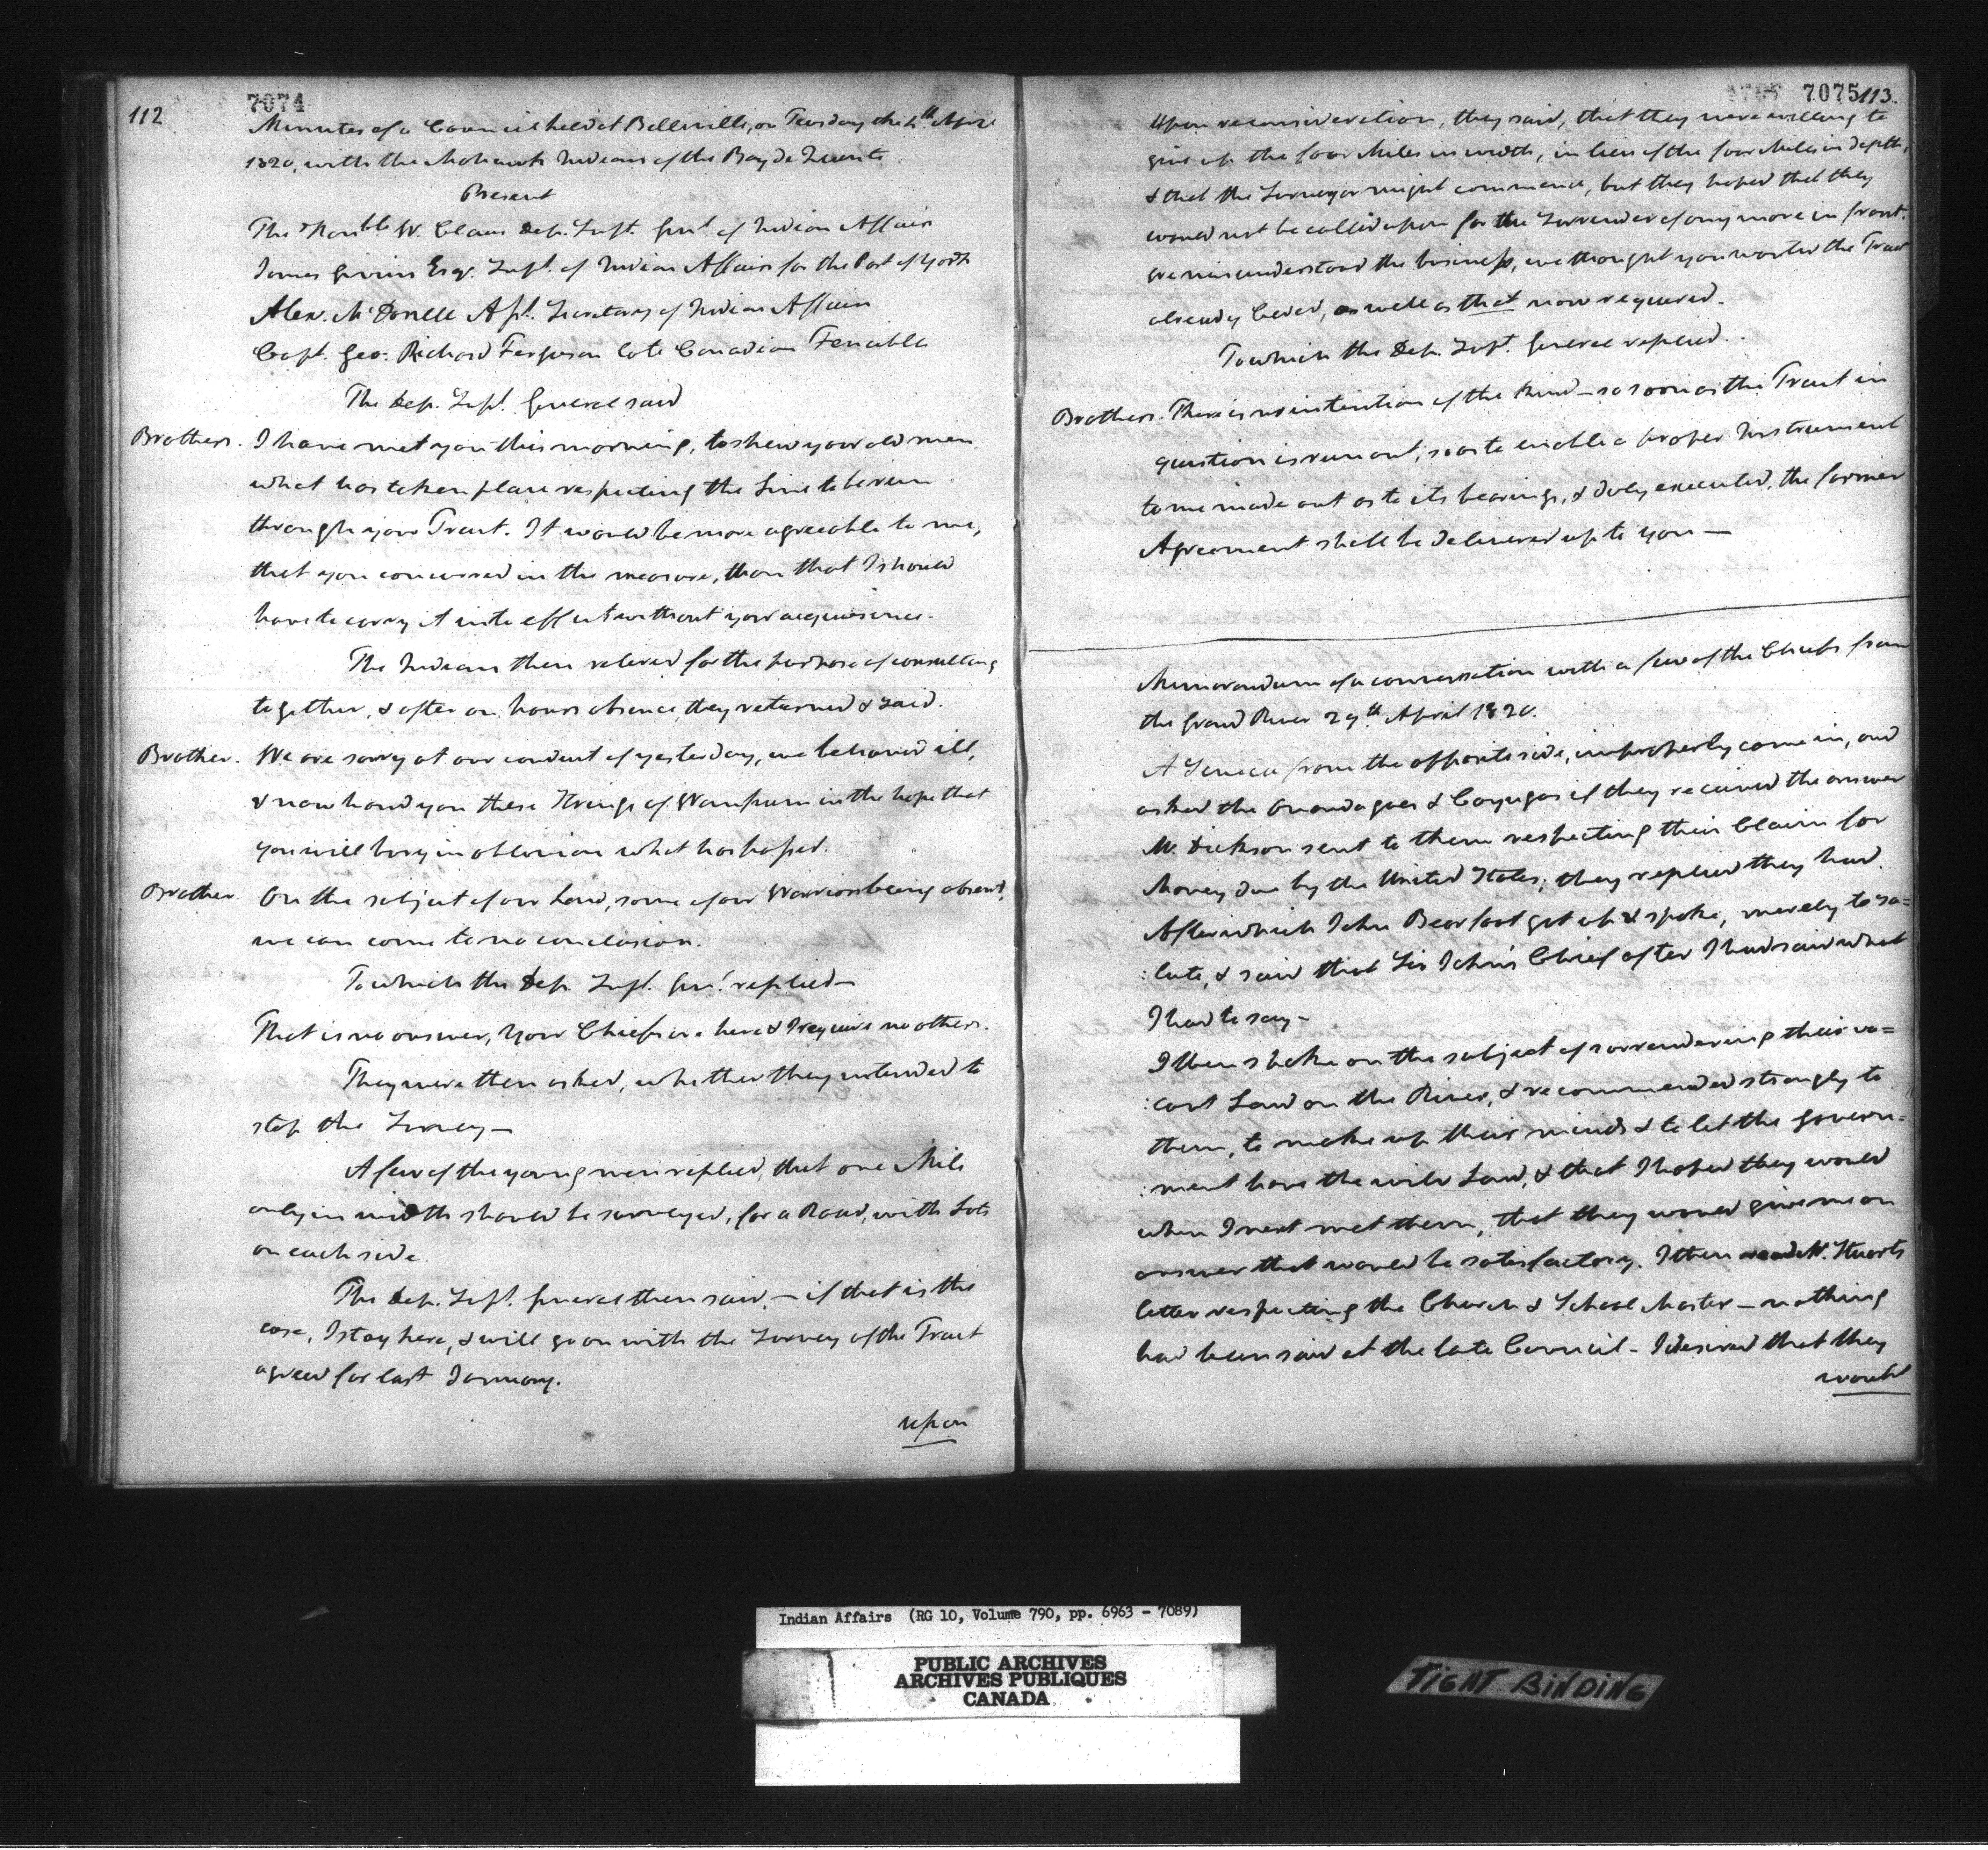 112
7074
Minutes of a Council held at Belleville, on Tuesday the 4th April
1820, with the Mohawk Indians of the Bay de Quente
Present
The Honble W. Claus Dep. Supt. Genl. of Indian Affairs
James Givins Esqr. Supt. of Indian Affairs for the Post of York
Alexr. McDonell Asst. Secretary of Indian Affairs
Capt. Geo: Richard Ferguson late Canadian Fencibles
The Dep. Supt. General said
Brothers. I have met you this morning, to shew your old men
what has taken place respecting the Line to be run
through your Tract. It would be more agreeable to me,
that you concurred in the measure, than that I should
have to carry it into effect without your acquiesence.
The Indians then retired for the purpose of consulting
together, & after an hours absence, they returned & said.
Brother. We are sorry at our conduct of yesterday, we behaved ill,
& now hand you these Strings of Wampum in the hope that
you will bury in oblivion what has passed.
Brother. On the subject of our Land, some of our Warriors being absent,
we can come to no conclusion.
To which the Dep. Supt. Genl. replied—
That is no answer, Your Chiefs are here & I require no others.
They were then asked, whether they intended to
stop the Survey—
A few of the young men replied, that one Mile
only in width should be surveyed, for a Road, with Lots
on each side
The Dep. Supt. General then said,— if that is the
case, I stay here, & will go on with the Survey of the Tract
agreed for last January.
upon
7075
113.
Upon reconsideration, they said, that they were willing to
give up the four Miles in width, in lieu of the four Miles in depth,
& that the Surveyor might commence, but they hoped that they
would not be called upon for the Surrender of any more in front.
We misunderstood the business, we thought you wanted the Tract
already Ceded, as well as that now required.
To which the Dep. Supt. General replied..
Brothers. There is no intention of the kind— so soon as the Tract in
question is run out, so as to enable a proper Instrument
to me made out as to its bearings, & duly executed, the former
Agreement shall be delivered up to you—
Memorandum of a conversation with a few of the Chiefs from
the Grand River 29th April 1820.
A Seneca from the opposite side, improperly came in, and
asked the Onondagoes & Cayugas if they received the answer
Mr. Dickson sent to them respecting their Claim for
Money due by the United States; they replied they had.
After which John Bearfoot got up & spoke, merely to sa=
:lute, & said that Sir John's Chief after I had said what
I had to say—
I then spoke on the subject of surrendering their va=
:cant Land on the River, & recommended strongly to
them, to make up their minds & to let the Govern=
:ment have the wild Land, & that I hoped they would
when I next met them, that they would give me an
answer that would be satisfactory. I then read Mr. Stuarts
letter respecting the Church & School Master— nothing
had been said at the late Council— I desired that they
would
Indian Affairs (RG 10, Volume 790, pp. 6963 - 7089)
PUBLIC ARCHIVES
ARCHIVES PUBLIQUES
CANADA
TIGHT BINDING